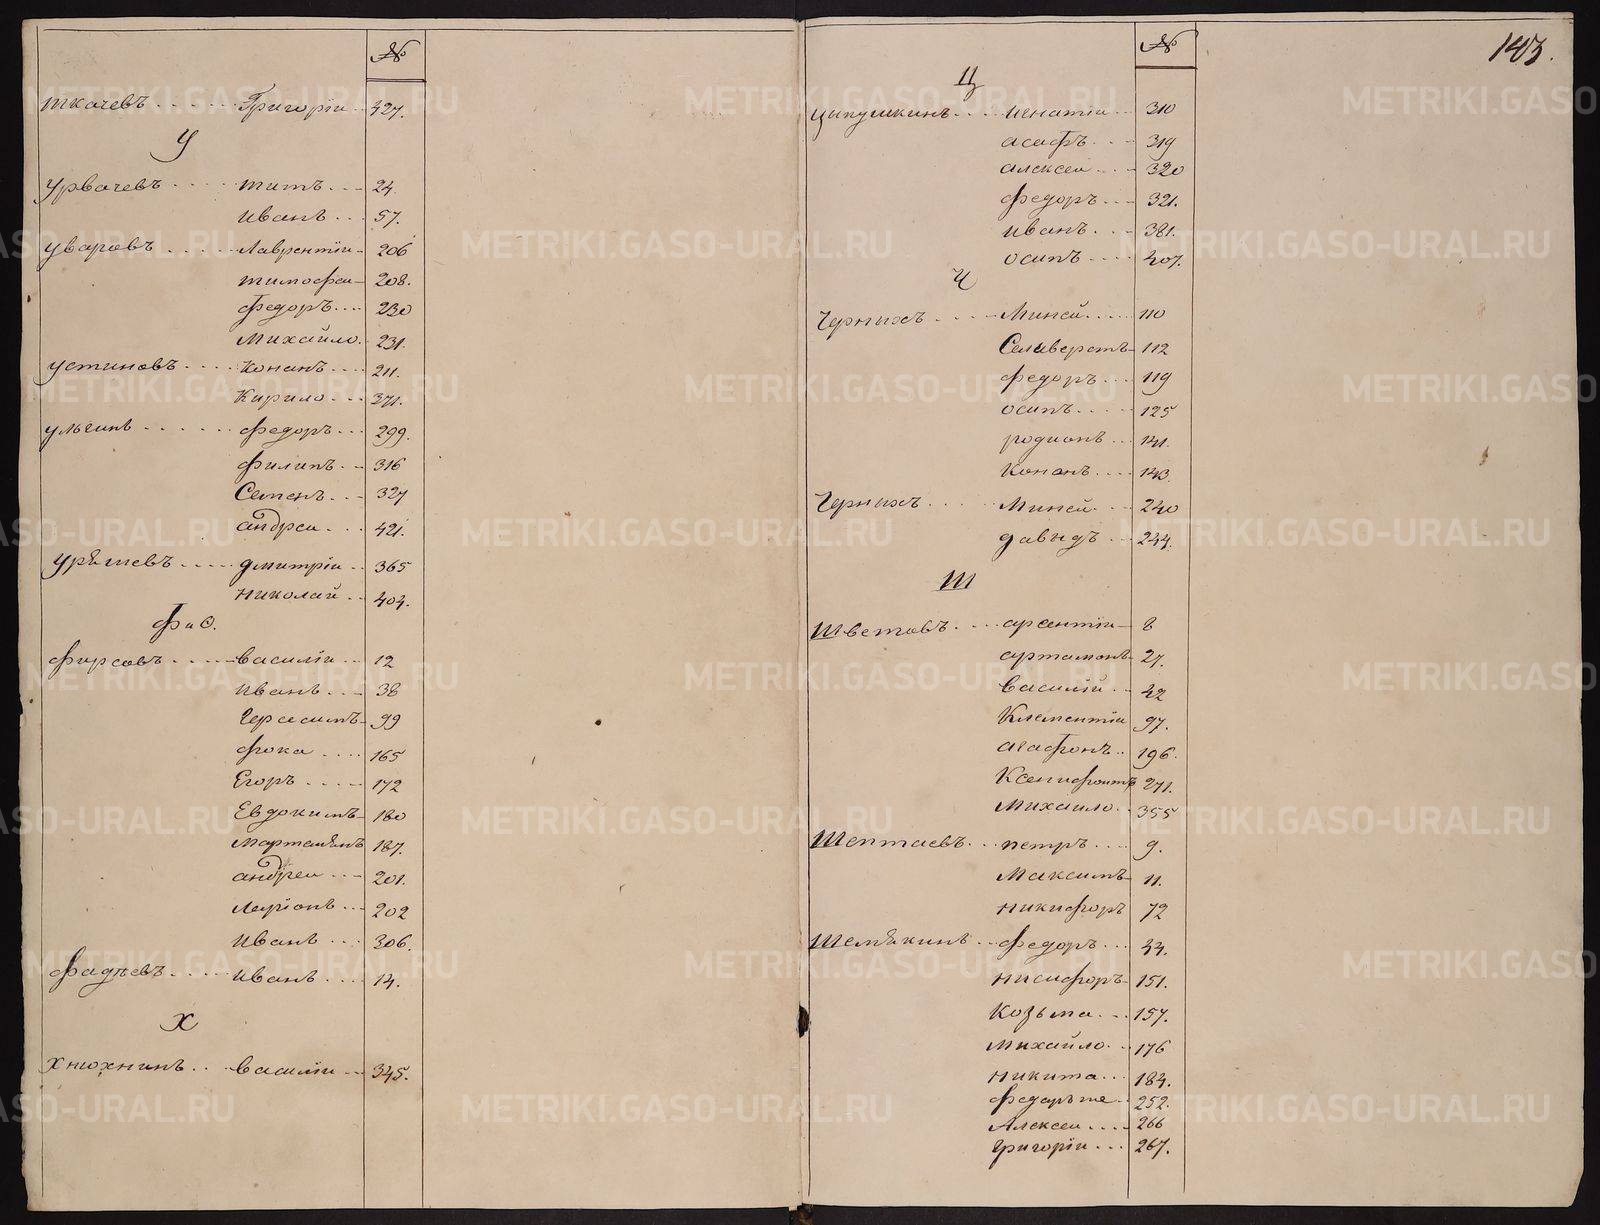 №
Ткачевъ Григорiи 427.
У
Урвачевъ титъ 24.
иванъ 57.
Уваровъ Лаврентiи 206
тимофеи 208.
федоръ 230
Михайло 231.
Устиновъ Конанъ 211.
Кирило 371.
Ульгинъ федоръ 299.
филипъ 316
Семенъ 327
андреи 421.
дмитрiи 365
николай 404.
Ф и Ѳ.
фирсовъ василiи 12
иванъ 38
Герасимъ 99
фока 165
Егоръ 172
Евдокимъ 180
187.
андреи 201.
Ларiонъ 202
иванъ 306.
фадѣевъ иванъ 14.
Х
Хнюхнинъ василiи 345.
№
143.
Ц
Цыпушкинъ игнатiи 310
асафъ 319
алексеи 320
федоръ 321.
иванъ 381.
осипъ 407.
Ч
Черныхъ Миней 110
Селиверстъ 112
федоръ 119
осипъ 125
родионъ 141.
Конанъ 143.
Черныхъ Миней 240
давыдъ 244.
Ш
Шветовъ арсентiи 8
артамонъ 27.
василiй 42
Клементiи 97.
агафонъ 196.
Ксенифонтъ 271.
Михаило 355
Шептаевъ петръ 9.
Максимъ 11.
никифоръ 72
Шемѣкинъ федоръ 44.
никифоръ 151.
Козьма 157.
Михайло 176
никита 184.
федоръ же 252.
Алексеи 266
Григорiи 267.
METRIKI.GASO-URAL.RU